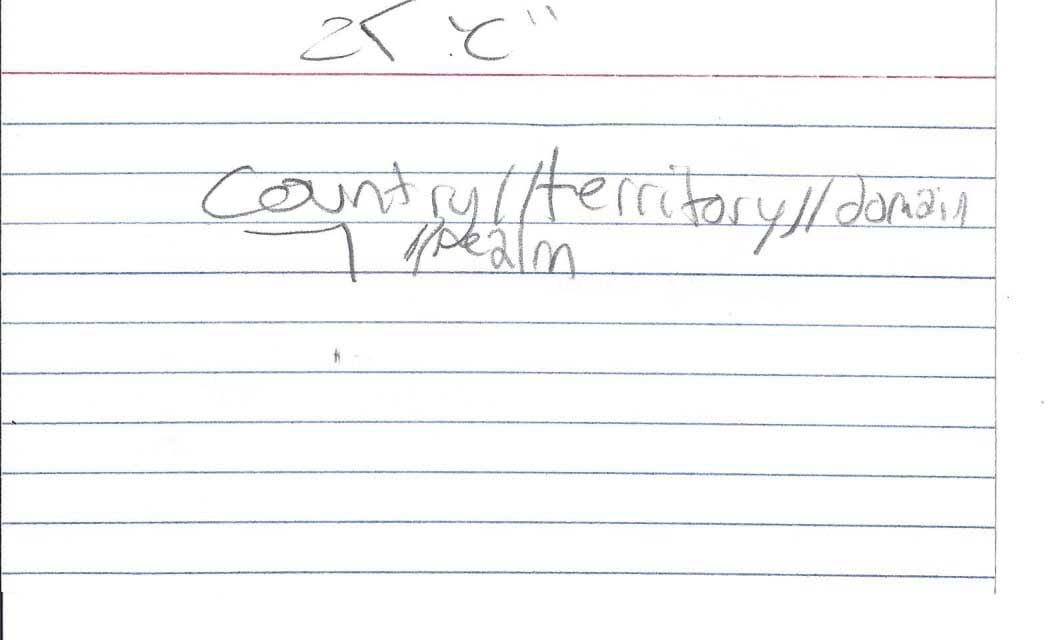 country//territory//domain
//realm